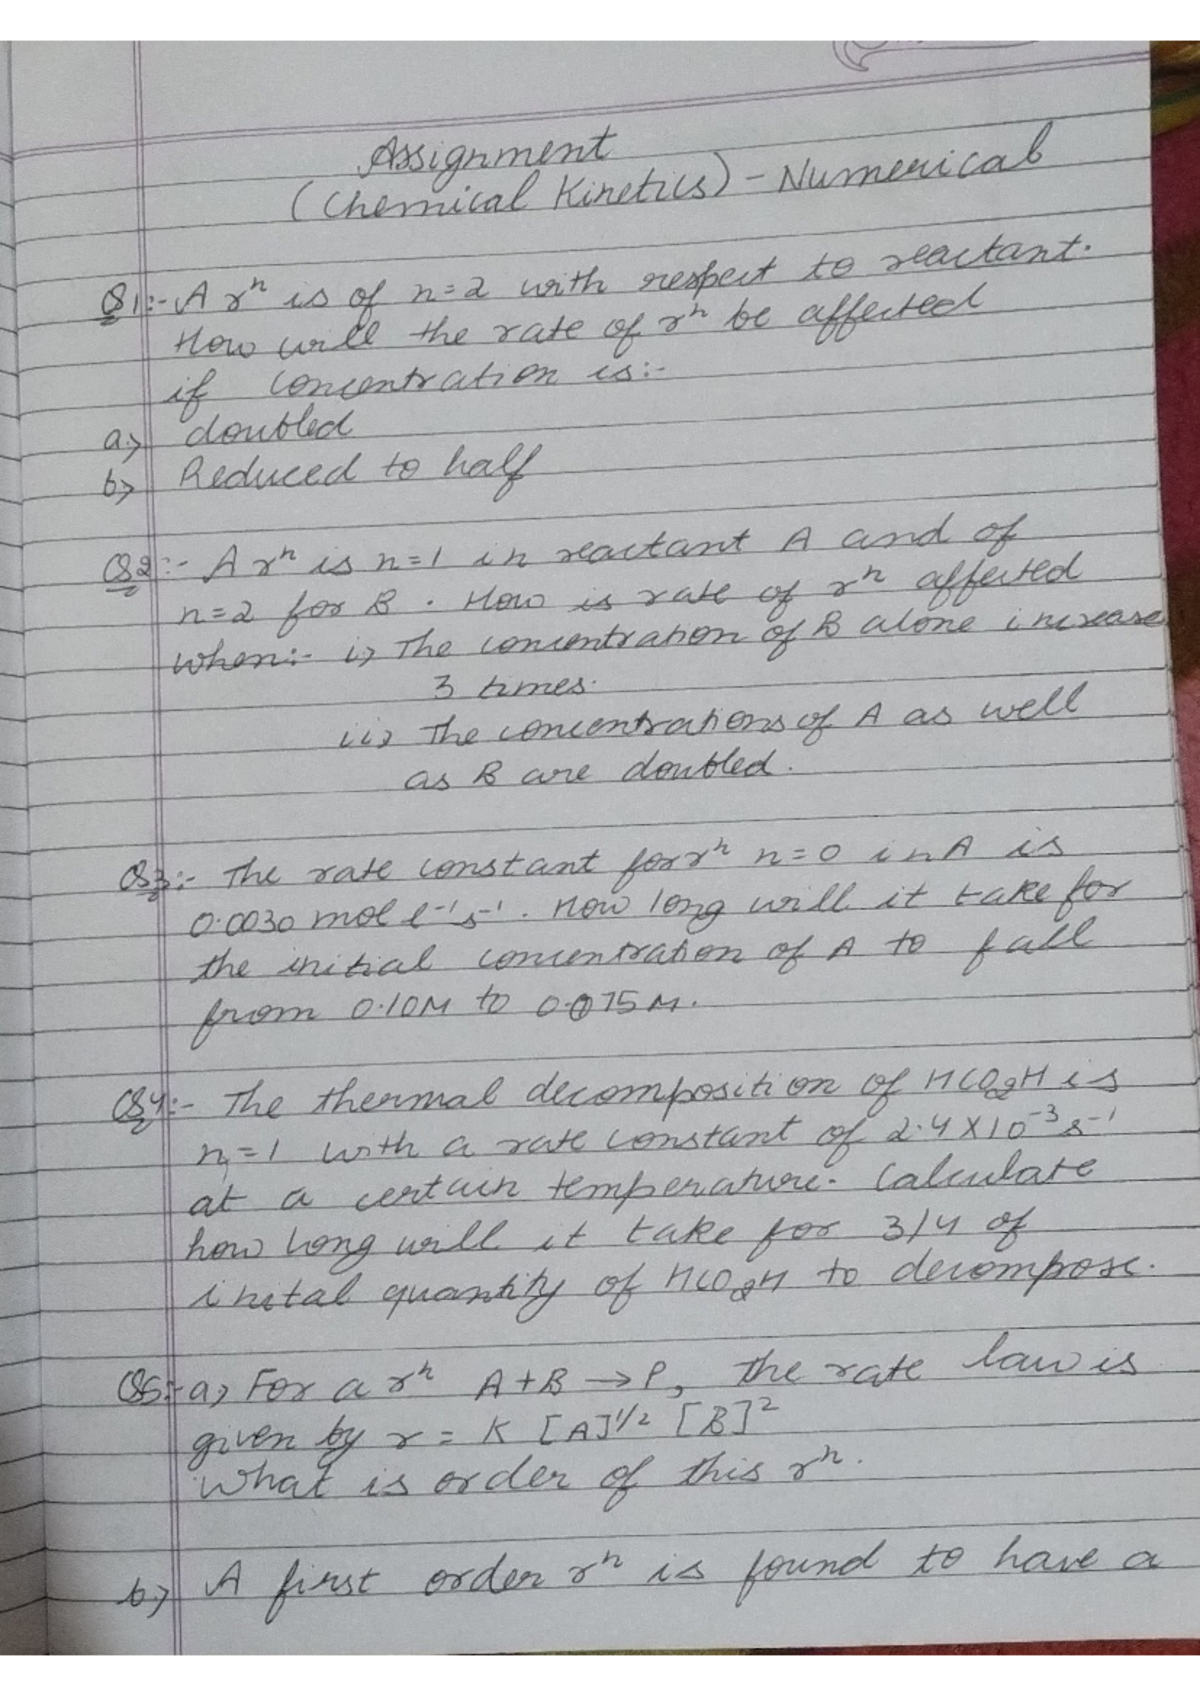 Assignment
(Chemical Kinetics) - Numerical
Q1:- A rⁿ is of n=2 with respect to reactant.
How will the rate of rⁿ be affected
if concentration is:-
a.> doubled
b> Reduced to half
Q2:- A rⁿ is n=1 in reactant A and of
n=2 for B. How is rate of rⁿ affected
when:- i> The concentration of B alone increase
3 times.
ii> The concentrations of A as well
as B are doubled.
Q3:- The rate constant for rⁿ n=0 in A is
0.0030 mol l⁻¹s⁻¹. How long will it take for
the initial concentration of A to fall
from 0.10M to 0.075M.
Q4:- The thermal decomposition of HCO₂H is
n=1 with a rate constant of 2.4 X 10⁻³ s⁻¹
at a certain temperature. Calculate
how long will it take for 3/4 of
inital quantity of HCO₂H to decompose.
Q5:- a> For a rⁿ A+B → P, The rate law is
given by r = K [A]¹/² [B]²
What is order of this rⁿ.
b.> A first order rⁿ is found to have a